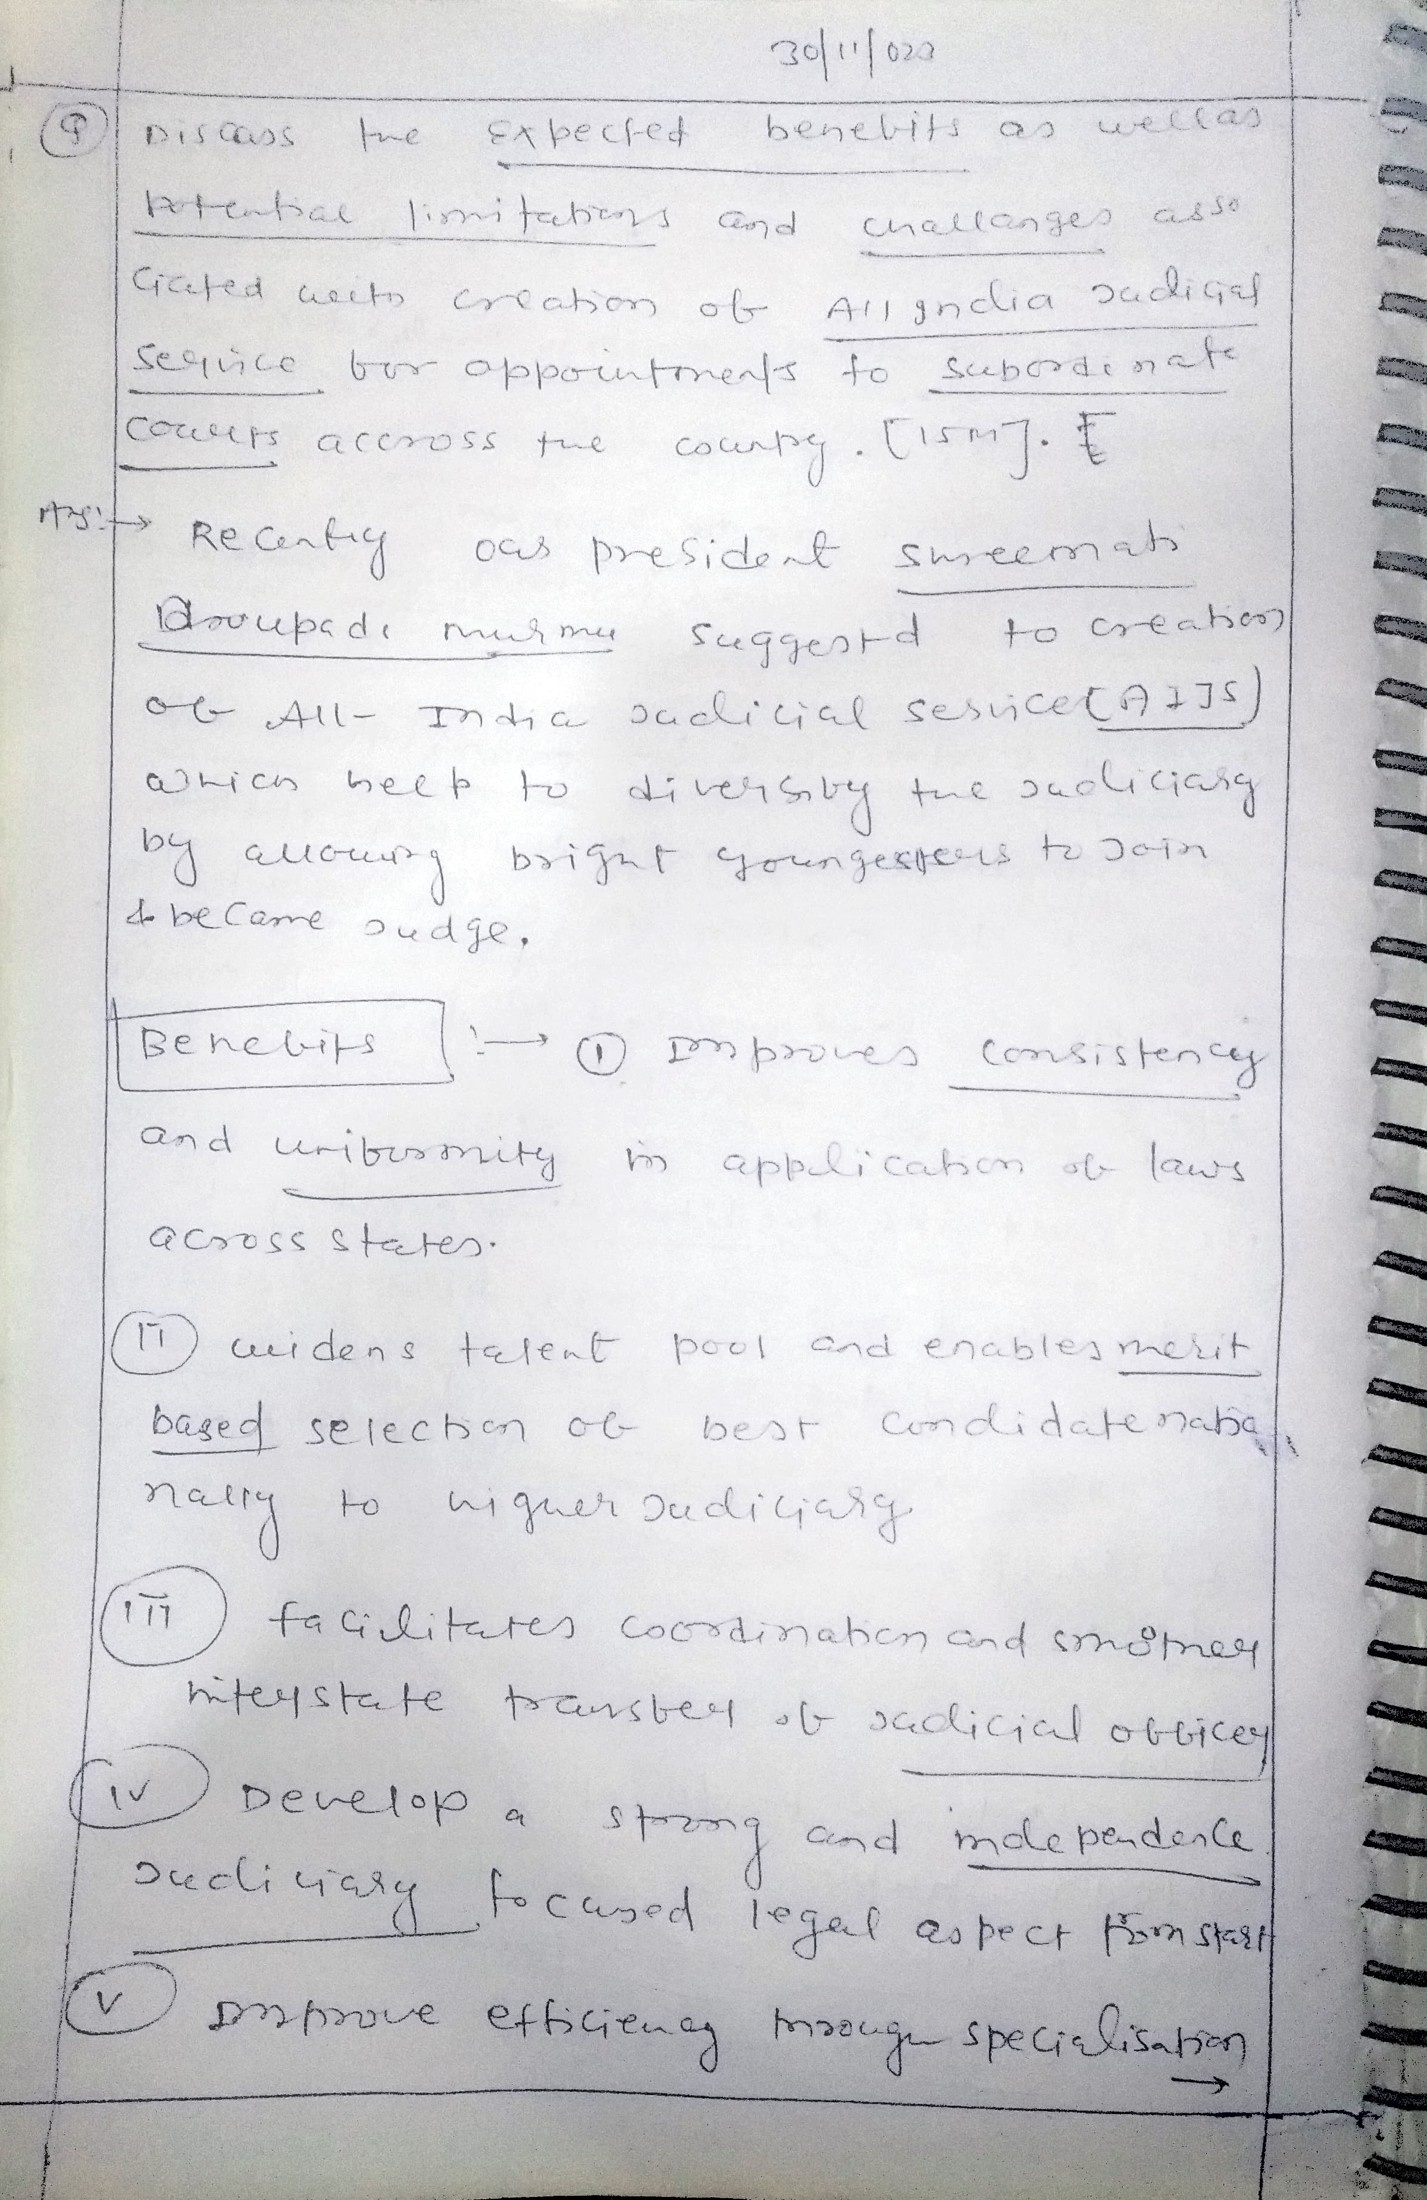 30/11/023
Q Discuss the Expected benefits as well as
Potential limitations and challanges asso
ciated with creation of All India Judicial
Service for appointments to subordinate
courts accross the country. [15M].
Ans:→ Recently our president shreemati
Droupadi murmu suggestd to creation
of All-India Judicial service (AIJS)
which help to diversify the Judiciary
by allowing bright youngesters to Join
& became Judge.
Benefits :→ (I) Improves consistency
and uniformity in application of laws
across states.
(II) widens talent pool and enables merit
based selection of best condidate natio
nally to higher Judiciary
(III) facilitates coordination and smother
interstate transfer of Judicial officer
(IV) Develop a strong and independence
Judiciary focused legal aspect from start
(V) Improve efficiency through specialisation
→